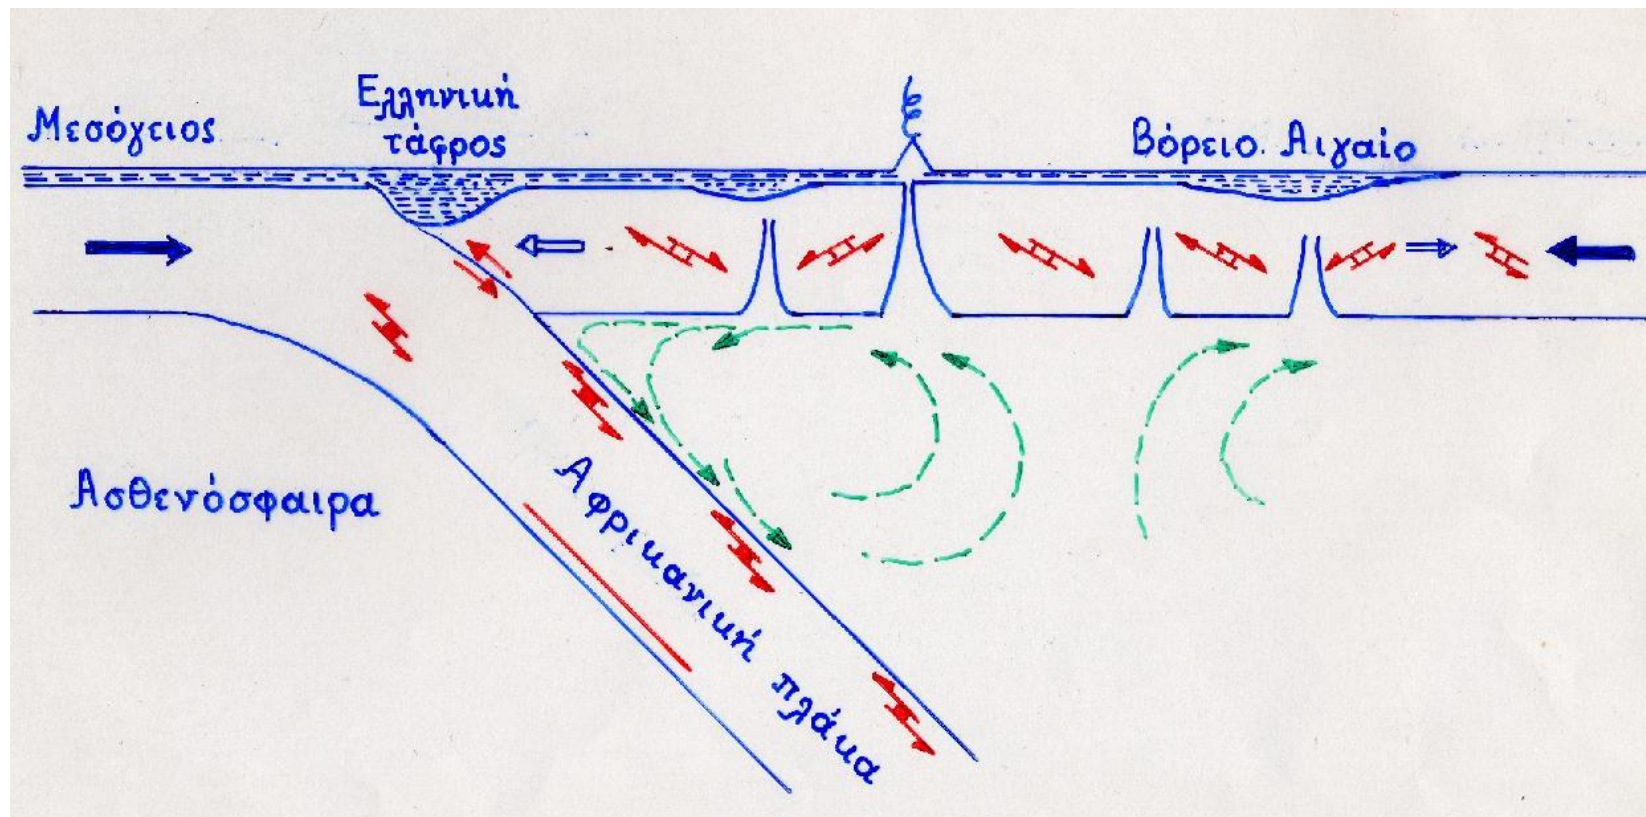 Μεσόγειος
Ελληνική
τάφρος
Βόρειο Αιγαίο
Ασθενόσφαιρα
Αφρικανική πλάκα